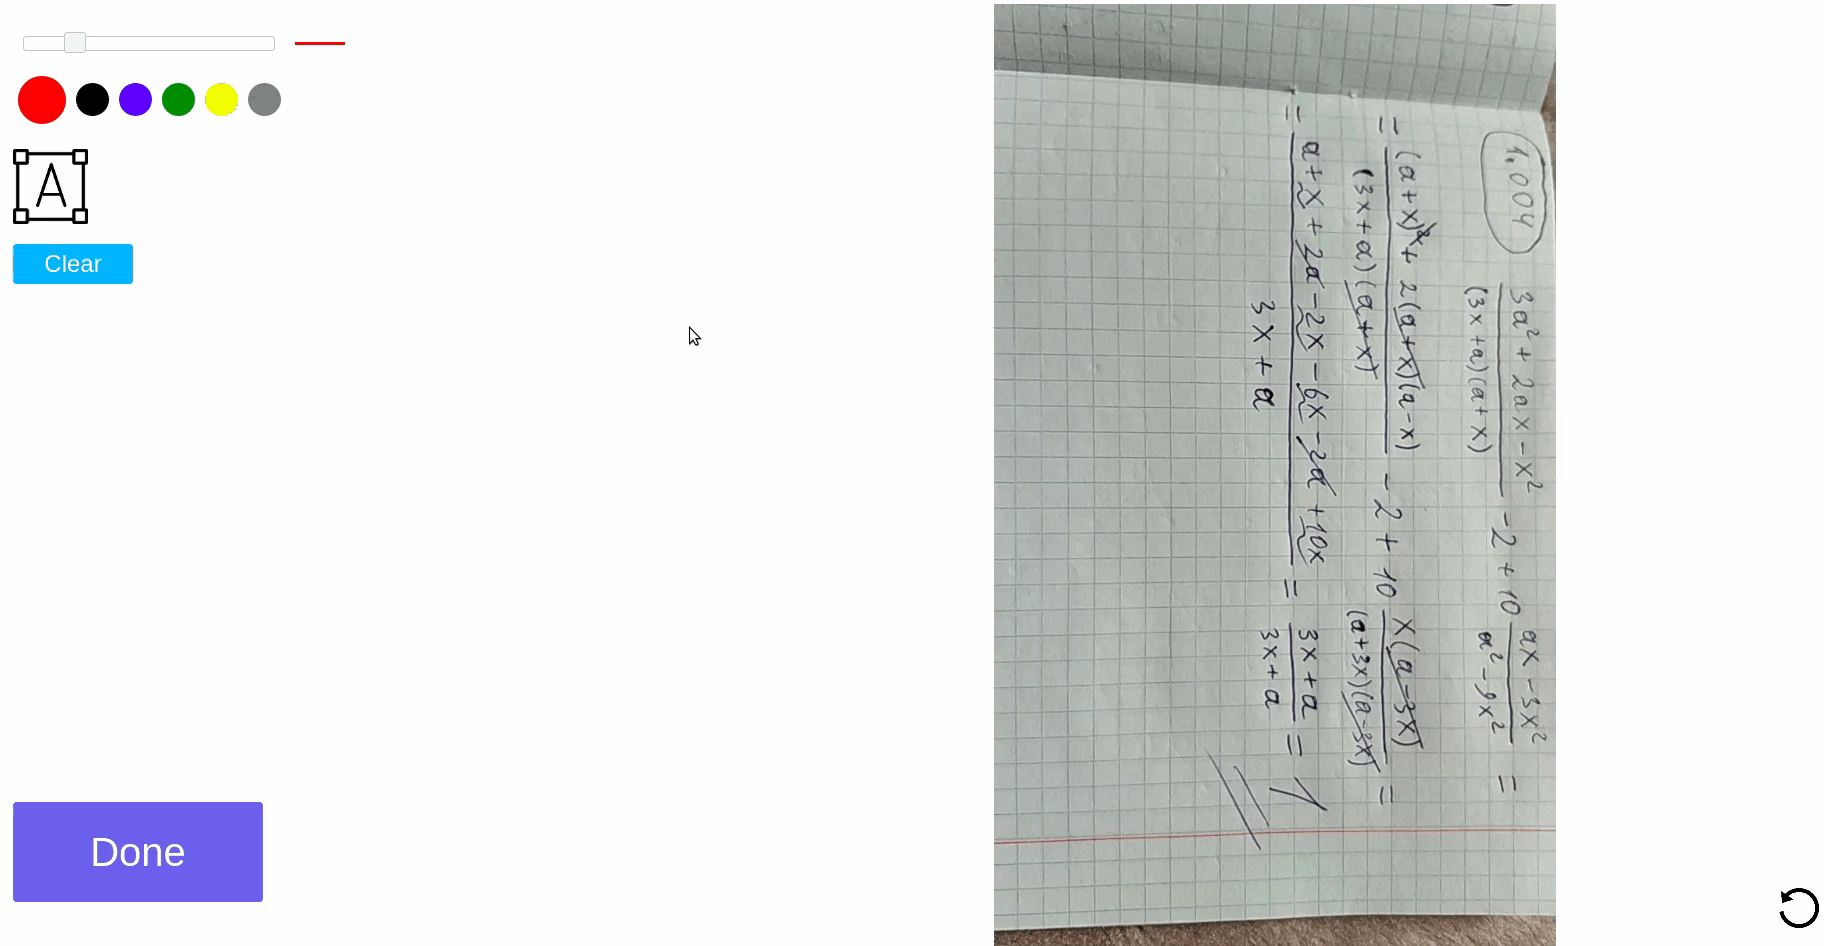 A
Clear
Done
1.004
3a² + 2ax - x² / (3x+a)(a+x) - 2 + 10 ax - 3x² / a² - 9x² =
= (a+x)² + 2(a+x)(a-x) / (3x+a)(a+x) - 2 + 10 x(a-3x) / (a+3x)(a-3x) =
= a+x + 2a - 2x - 6x - 2a + 10x / 3x+a = 3x+a / 3x+a = 1